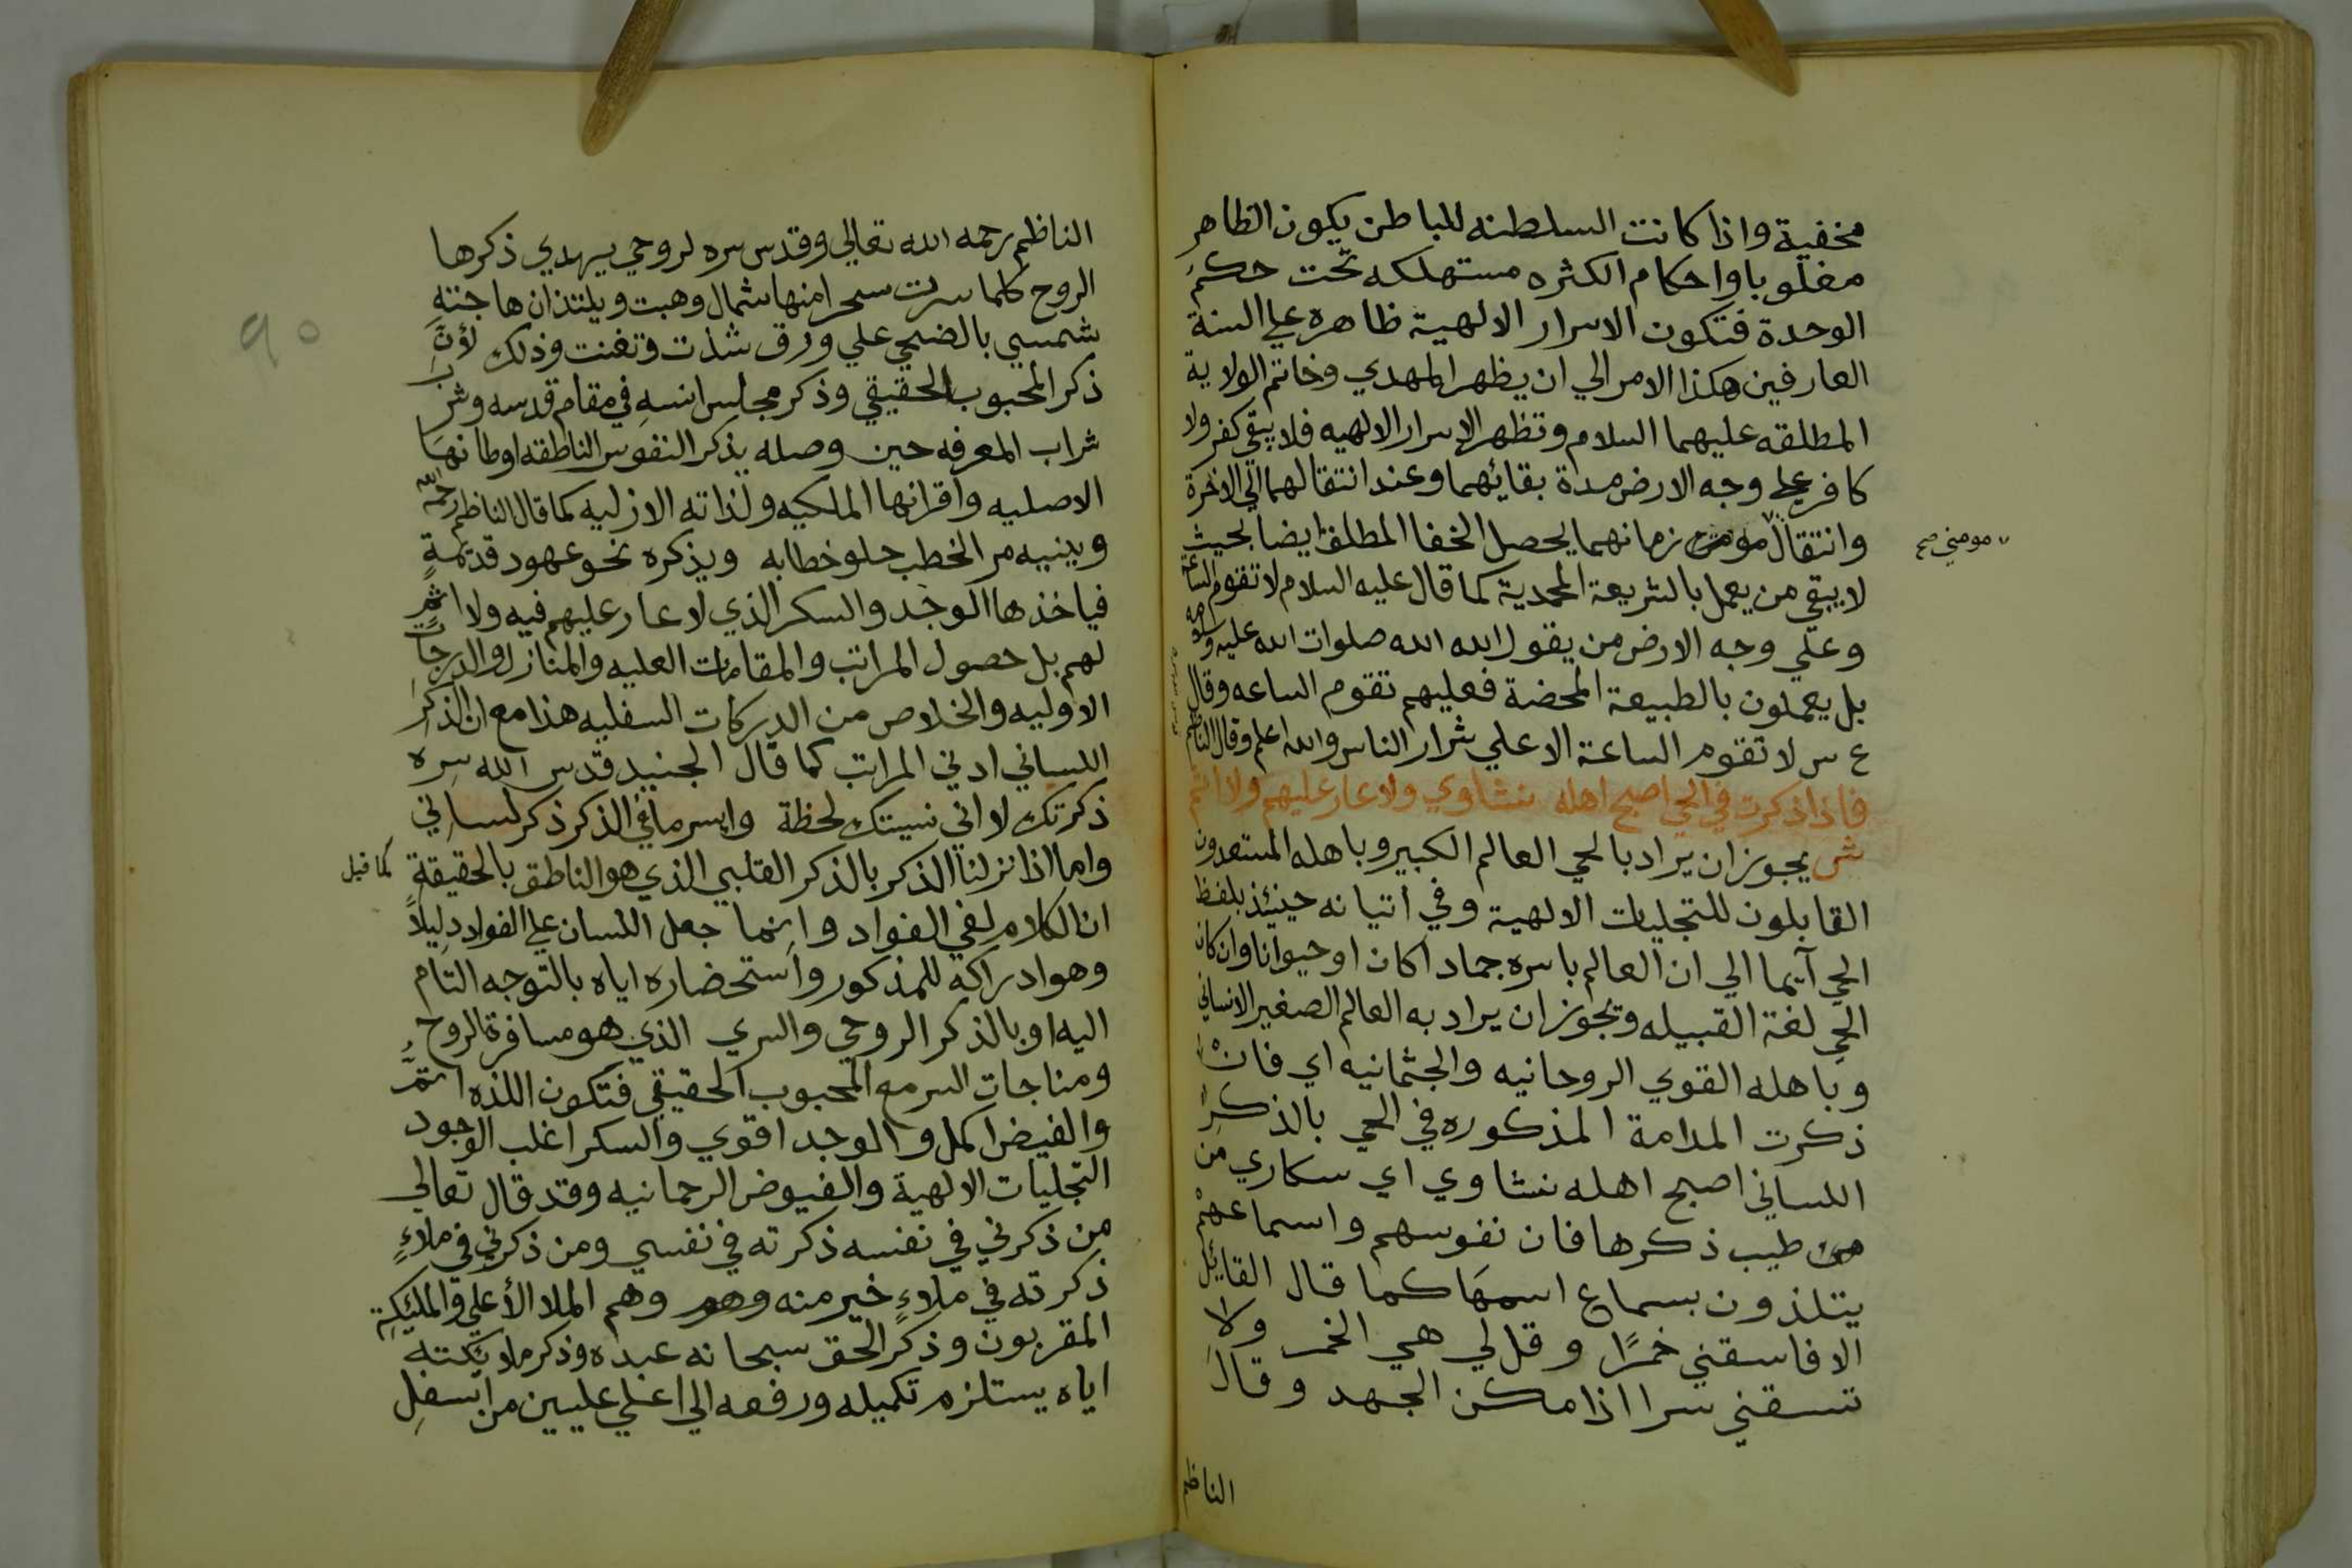 مخفية واذا كانت السلطنه للباطن يكون الظاهر
مغلوبا واحكام الكثره مستهلكه تحت حكم
الوحدة فتكون الاسرار الالهية ظاهره علي السنة
العارفين هكذا الامر الي ان يظهر المهدي وخاتم الولاية
المطلقه عليهما السلام وتظهر الاسرار الالهيه فلا يبقي كفر ولا
كافر علي وجه الارض مدة بقائهما وعند انتقالهما الي الاخرة
وانتقال مومن زمانهما يحصل الخفا المطلق ايضا بحيث
مومني صح
لا يبقي من يعمل بالشريعة المحمدية كما قال عليه السلام لا تقوم الساعة
وعلي وجه الارض من يقول الله الله صلوات الله عليه وسلامه
بل يعملون بالطبيعة المحضة فعليهم تقوم الساعه وقال
ع س لا تقوم الساعة الا علي شرار الناس والله اعلم وقال الناظم
فاذا ذكرت في الحي اصبح اهله نشاوي ولا عار عليهم ولا اثم
ش يجوز ان يراد بالحي العالم الكبير وباهله المستعدون
القابلون للتجليات الالهية وفي اتيانه حينئذ بلفظ
الحي آيما الي ان العالم باسره جمادا كان او حيوانا وان كان
الحي لغة القبيله ويجوز ان يراد به العالم الصغير الانساني
وباهله القوي الروحانيه والجثمانيه اي فان
ذكرت المدامة المذكوره في الحي بالذكر
اللساني اصبح اهله نشاوي اي سكاري من
طيب ذكرها فان نفوسهم واسماعهم
يتلذون بسماع اسمها كما قال القايل
الا فاسقني خمرًا وقل لي هي الخمر ولا
تسقني سرا اذا مكن الجهد وقال
الناظم
الناظم رحمه الله تعالي وقدس سره لروحي يهدي ذكرها
الروح كلما سرت سحرا منها شمال وهبت ويلتذ ان هاجته
شمسي بالضحي علي ورق شذت وتغنت وذلك لأنّ
ذكر المحبوب الحقيقي وذكر مجلس انسه في مقام قدسه وشرب
شراب المعرفه حين وصله يذكر النفوس الناطقه اوطانها
الاصليه واقرانها الملكيه ولذاته الازليه كما قال الناظم رحمه الله
وينبيه مر الخطب حلو خطابه ويذكره نحو عهود قديمةٍ
فياخذها الوجد والسكر الذي لا عار عليهم فيه ولا اثم
لهم بل حصول المراتب والمقامات العليه والمنازل والدرجات
الاوليه والخلاص من الدركات السفليه هذا مع ان الذكر
اللساني ادني المراتب كما قال الجنيد قدس الله سره
ذكرتك لا اني نسيتك لحظة وايسر ما في الذكر ذكر لساني
واما اذا نزلنا الذكر بالذكر القلبي الذي هو الناطق بالحقيقة كما قيل
ان الكلام لفي الفواد وانما جعل اللسان علي الفواد دليلاً
وهو ادراكه للمذكور واستحضاره اياه بالتوجه التام
اليه او بالذكر الروحي والسري الذي هو مسافرة الروح
ومناجات السر مع المحبوب الحقيقي فتكون اللذه اتمّ
والفيض اكمل والوجد اقوي والسكر اغلب الوجود
التجليات الالهية والفيوض الرحمانيه وقد قال تعالي
من ذكرني في نفسه ذكرته في نفسي ومن ذكرني في ملاءٍ
ذكرته في ملاءٍ خير منه وهو وهم الملا الأعلي والمليكة
المقربون وذكر الحق سبحانه عبده وذكر ملايكته
اياه يستلزم تكميله ورفعه الي اعلي عليين من اسفل
٩٠